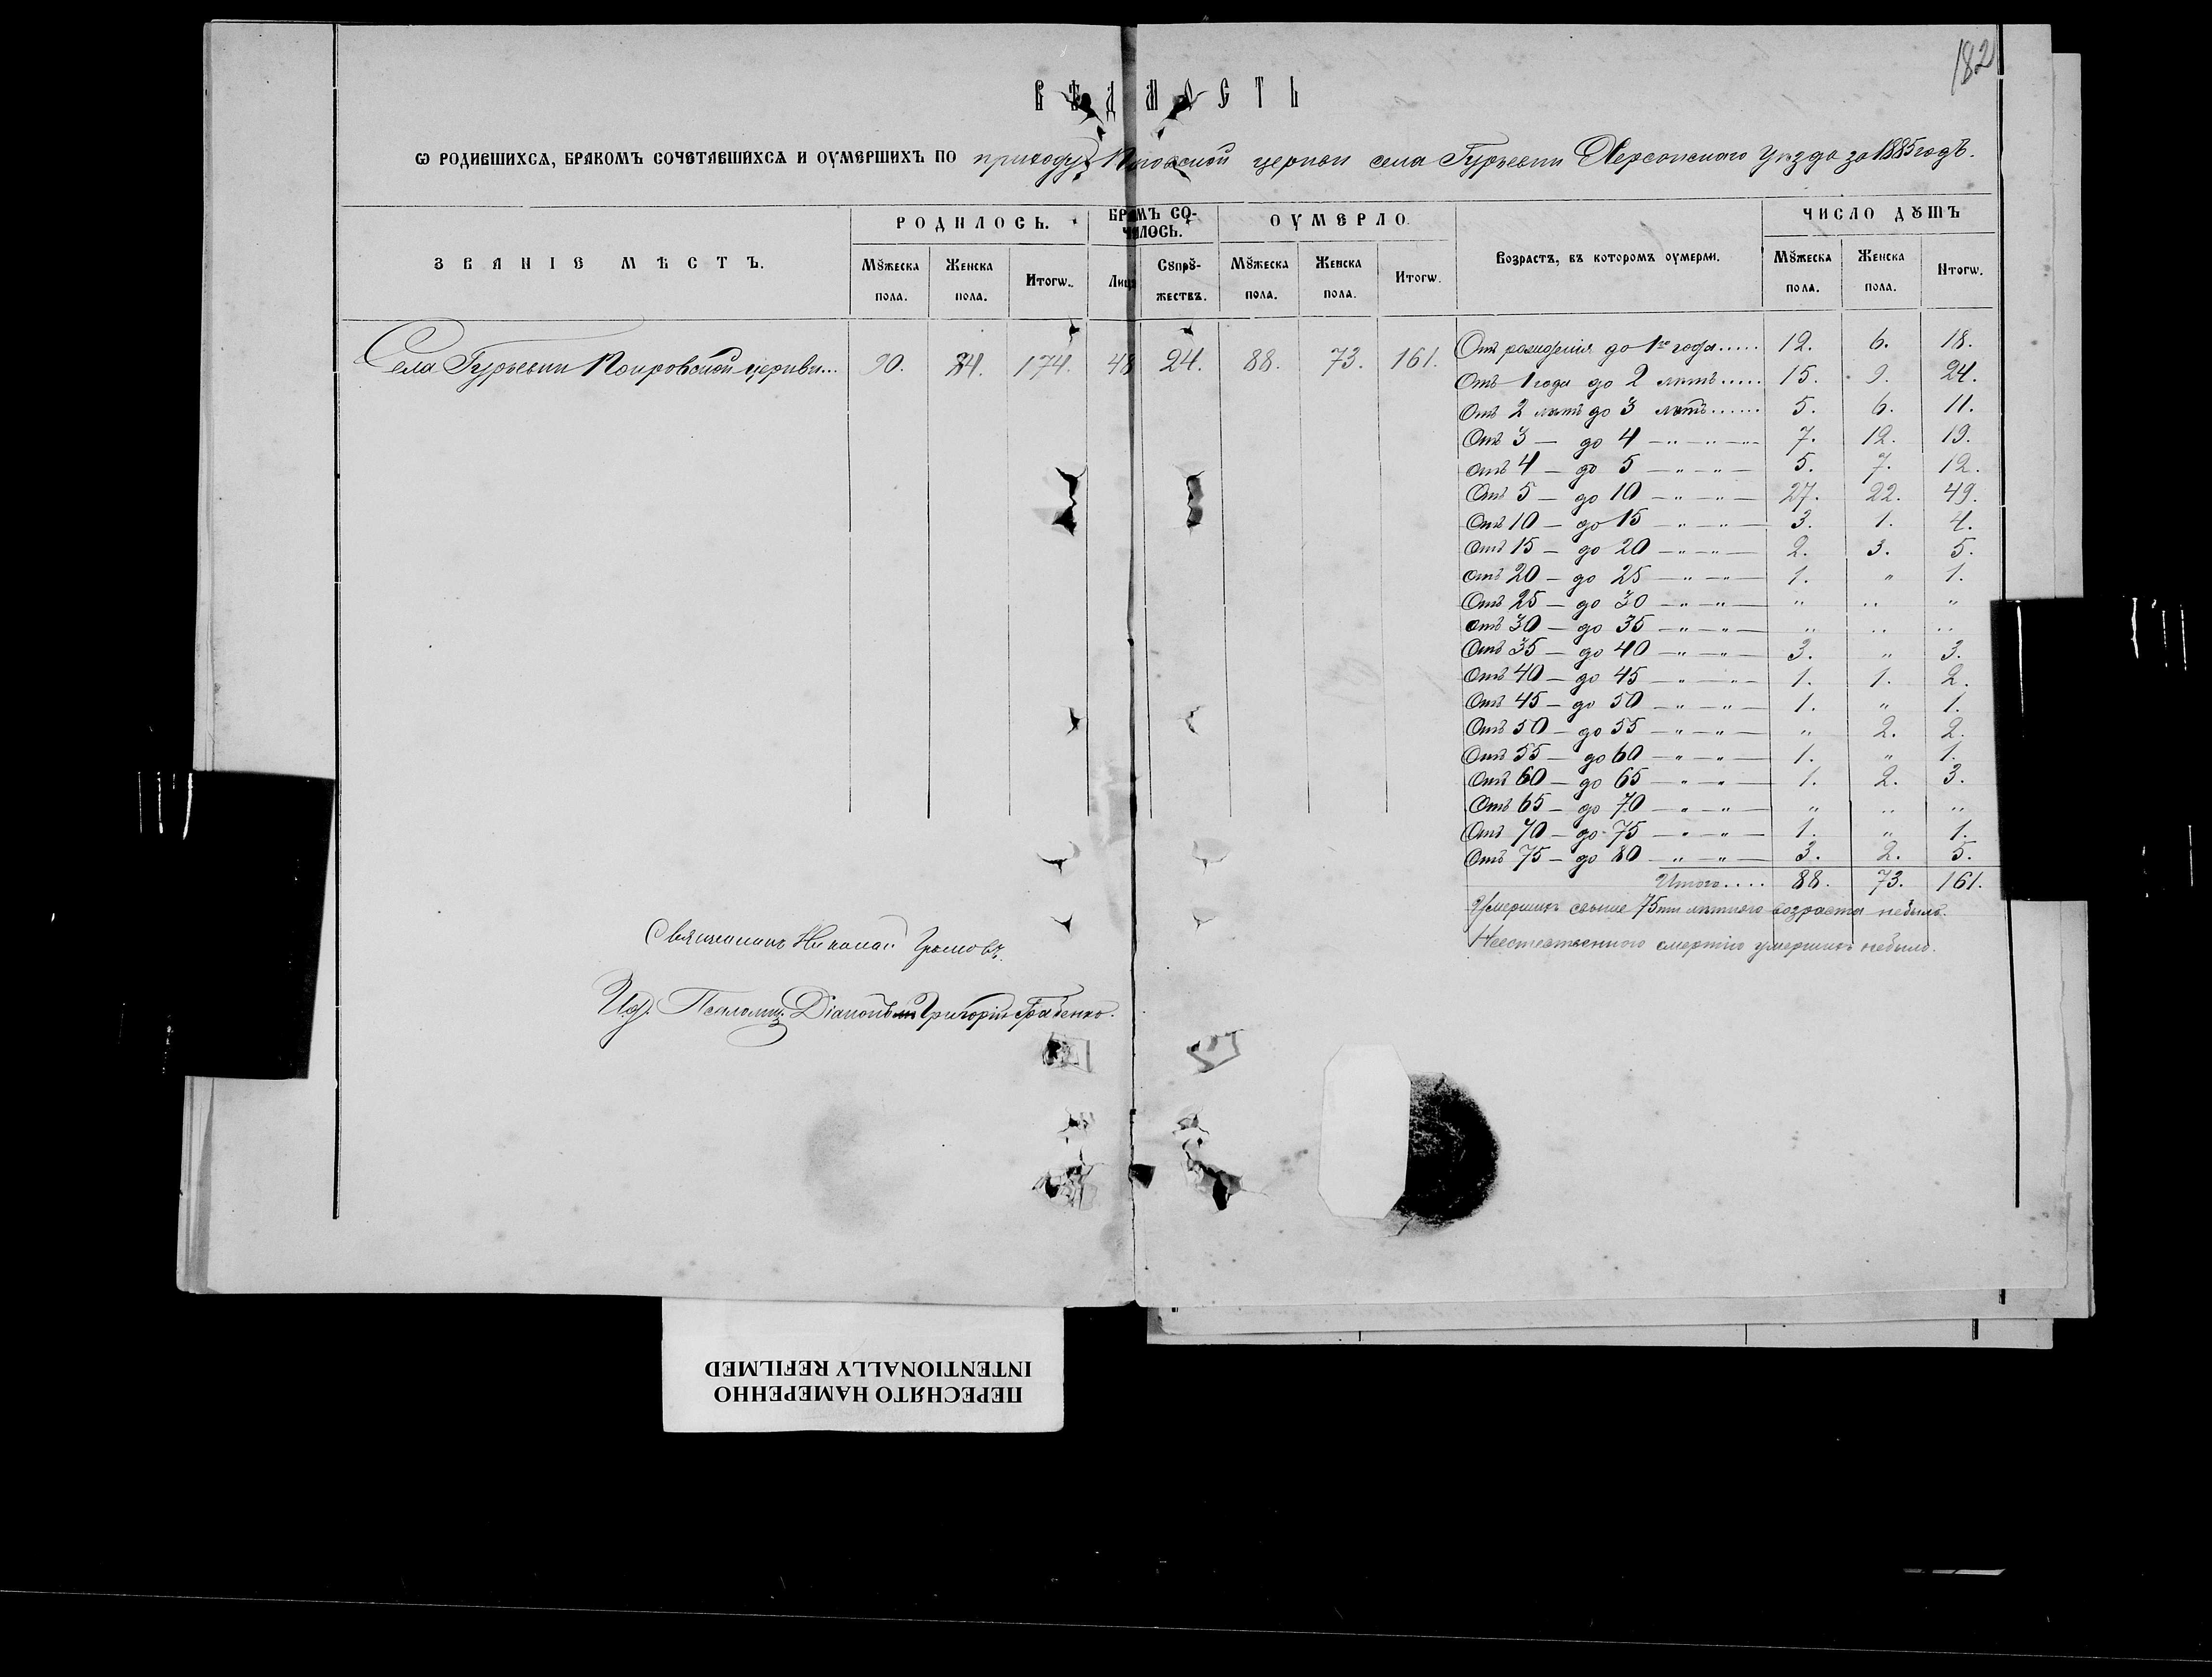 182
ВѢДОМОСТЬ
Ѡ РОДИВШИХСѦ, БРАКОМЪ СОЧЕТАВШИХСѦ И ОУМЕРШИХЪ ПО приходу Покровской церкви села Гурьевки Херсонскаго уѣзда за 1885 годъ.
ЗВАНІЕ МѢСТЪ.
РОДИЛОСЬ.
БРАКОМЪ СО-
ЧИЛОСЬ.
ОУМЕРЛО.
Возрастъ, въ которомъ оумерли.
ЧИСЛО ДꙊШЪ
Мꙋжеска пола. Женска пола. Итогѡ. Лица Сꙋпрꙋ-
жествъ. Мꙋжеска пола. Женска пола. Итогѡ. Мꙋжеска пола. Женска пола. Итогѡ.
Села Гурьевки Покровской церкви... 90. 84. 174. 48 24. 88. 73. 161.
Отъ рожденія до 1го года..... 12. 6. 18.
Отъ 1 года до 2 лѣтъ..... 15. 9. 24.
Отъ 2 лѣтъ до 3 лѣтъ...... 5. 6. 11.
Отъ 3 — до 4 — " — " — 7. 12. 19.
Отъ 4 — до 5 — " — " — 5. 7. 12.
Отъ 5 — до 10 — " — " — 27. 22. 49.
Отъ 10 — до 15 — " — " — 3. 1. 4.
Отъ 15 — до 20 — " — " — 2. 3. 5.
Отъ 20 — до 25 — " — " — 1. " 1.
Отъ 25 — до 30 — " — " — " " "
Отъ 30 — до 35 — " — " — " " "
Отъ 35 — до 40 — " — " — 3. " 3.
Отъ 40 — до 45 — " — " — 1. 1. 2.
Отъ 45 — до 50 — " — " — 1. " 1.
Отъ 50 — до 55 — " — " — " 2. 2.
Отъ 55 — до 60 — " — " — 1. " 1.
Отъ 60 — до 65 — " — " — 1. 2. 3.
Отъ 65 — до 70 — " — " — " " "
Отъ 70 — до 75 — " — " — 1. " 1.
Отъ 75 — до 80 — " — " — 3. 2. 5.
Итого.... 88. 73. 161.
Умершихъ свыше 75ти лѣтняго возраста небыло.
Неестественною смертію умершихъ небыло.
Священникъ Николай
И.д. Псаломщ. Діаконъ Григорій Грабенко.
ПЕРЕСНЯТО НАМЕРЕННО
INTENTIONALLY REFILMED